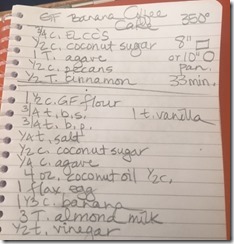 GF Banana Coffee 350°
Cake
3/4 c. ELCC'S 8" □
1/2 c. coconut sugar or 10" O
1 T. agave pan.
1/2 c. pecans 33 min.
1/2 T. cinnamon
1 1/2 c. GF flour
3/4 t. b.s. 1 t. vanilla
3/4 t. b.p.
1/4 t. salt
1/2 c. coconut sugar
1/4 c. agave
4 oz. coconut oil 1/2 c.
1 flax egg
1 1/3 c. banana
3 T. almond milk
1/2 t. vinegar